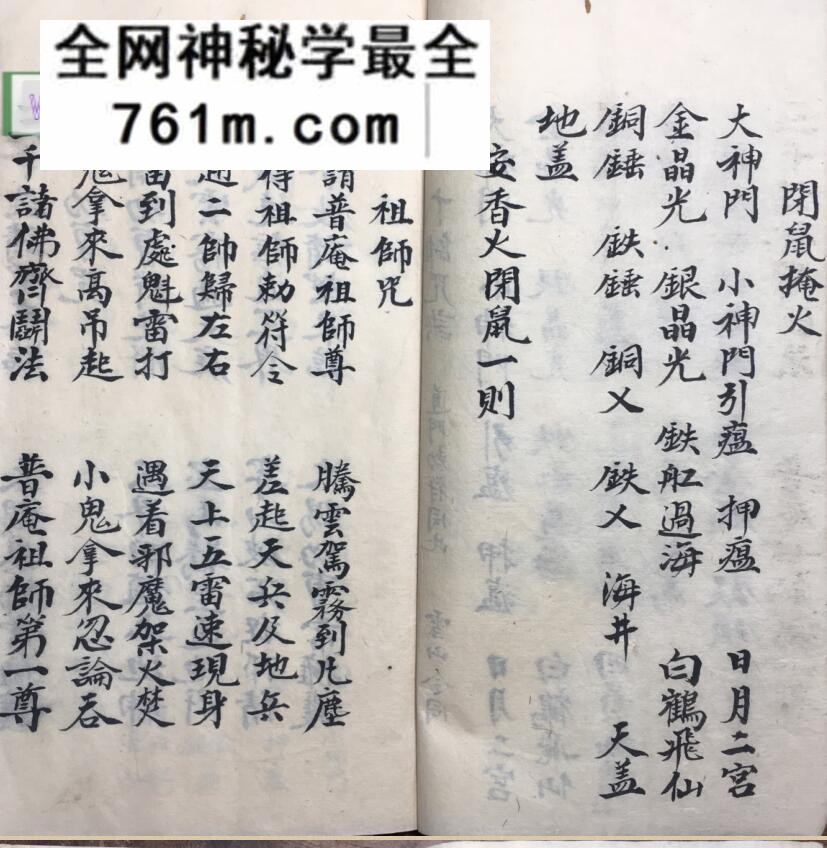 全网神秘学最全
761m.com
閉鼠掩火
大神門 小神門引瘟 押瘟 日月二宮
金晶光 銀晶光 鉄舡過海 白鶴飛仙
銅錘 鉄錘 銅㐅 鉄㐅 海井 天盖
地盖
安香火閉鼠一則
祖師咒
請普庵祖師尊 騰雲駕霧到凢塵
得祖師勅符令 差起天兵及地兵
二帥歸左右 天上五雷速現身
雷到處魁雷打 遇着邪魔架火焚
拿來高吊起 小鬼拿來忽論吞
千諸佛齊鬪法 普庵祖師第一尊